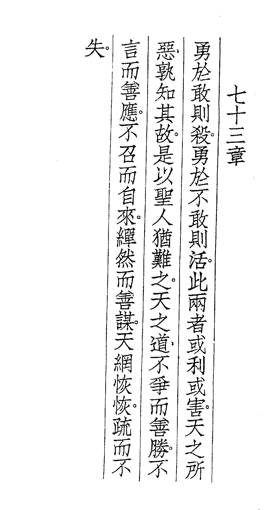 七十三章
勇於敢則殺。勇於不敢則活。此兩者或利或害。天之所
惡、孰知其故。是以聖人猶難之。天之道、不爭而善勝。不
言而善應。不召而自來。繟然而善謀。天網恢恢。疏而不
失。